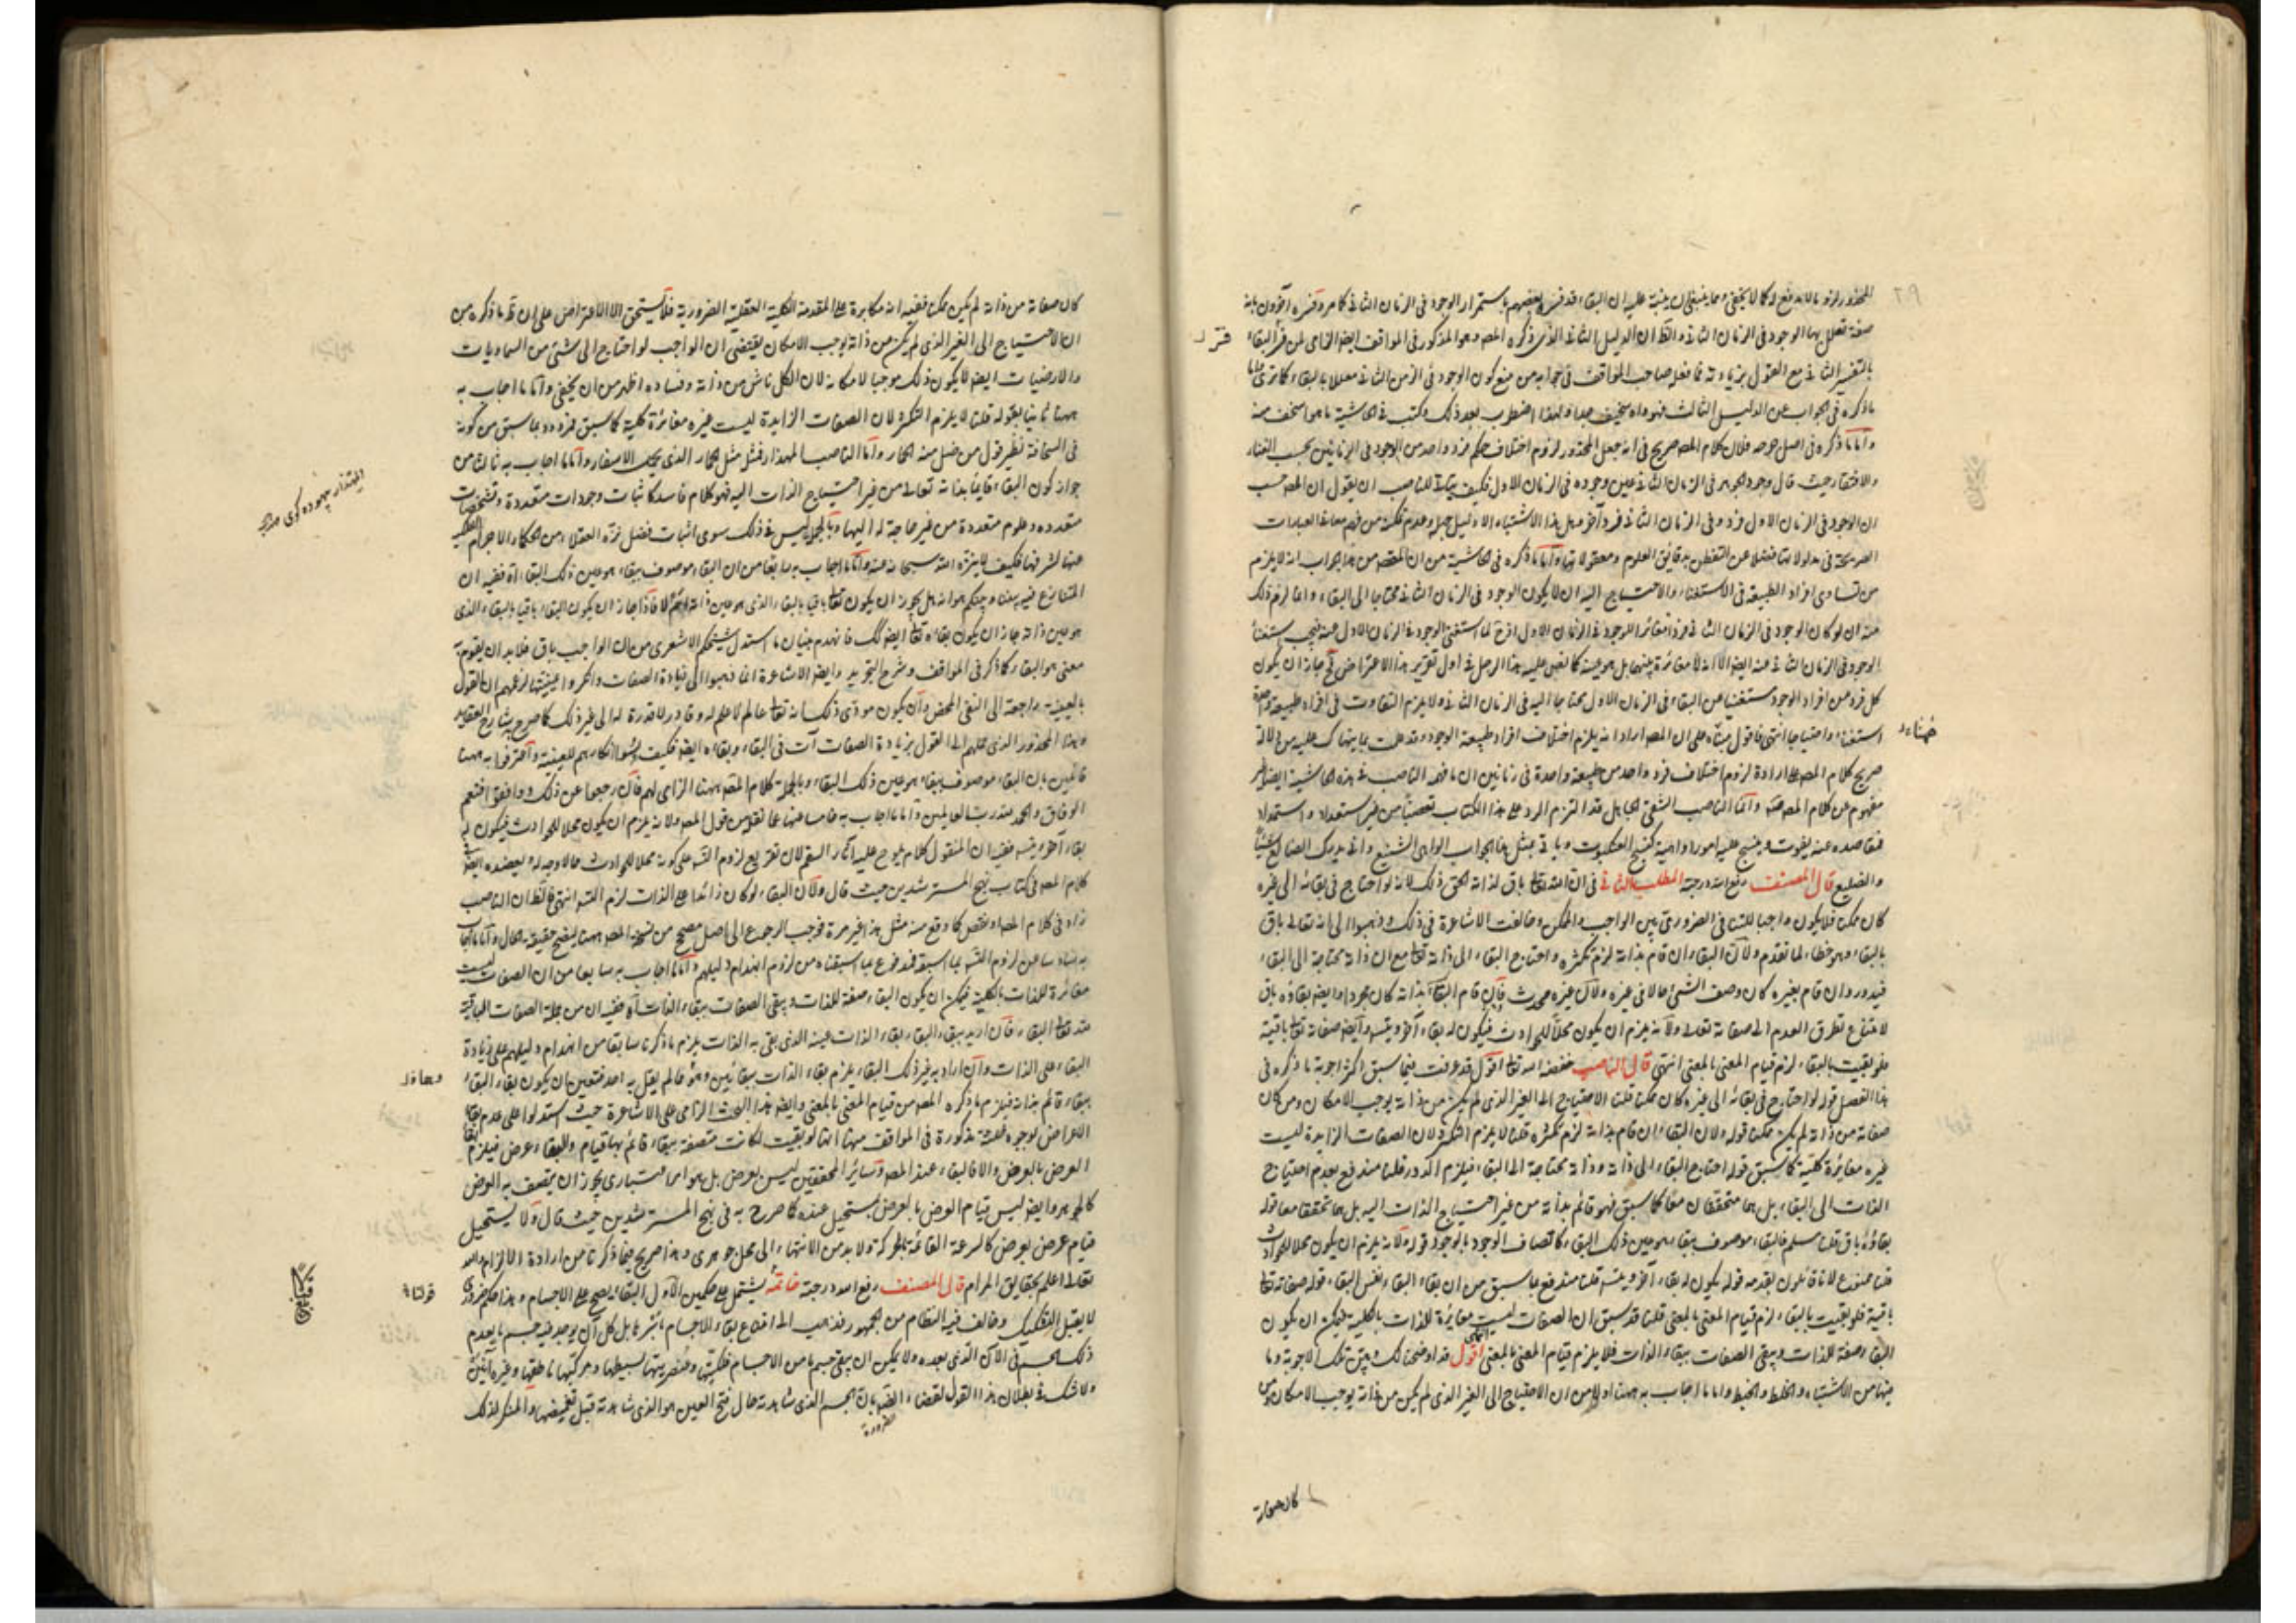 المحذور لزوما لا يدفع له كما لا يخفى ومما ينبغي ان ينبه عليه ان البقاء قد فسره بعضهم باستمرار الوجود في الزمان الثاني كما مر وفسره آخرون بانه
صفة تعلل بها الوجود في الزمان الثاني والظ ان الدليل الثاني الذي ذكره المصـ وهو المذكور في المواقف ايضا الزامي لمن فسر البقاء
بالتفسير الثاني مع القول بزيادته فما فعله صاحب المواقف في جوابه من منع كون الوجود في الزمن الثاني معللا بالبقاء كما ترى واما
ما ذكره في الجواب عن الدليل الثالث فهو واه سخيف جدا ولهذا اضطرب بعد ذلك وكتب في الحاشية ما هو اسخف منه
واما ما ذكره في اصل جرحه فلان كلام المصـ صريح في انه جعل المحذور لزوم اختلاف حكم فرد واحد من الوجود في الزمانين بحسب الغناء
والافتقار حيث قال وجود الجوهر في الزمان الثاني عين وجوده في الزمان الاول فكيف يتأتى للناصب ان يقول ان المصـ حسب
ان الوجود في الزمان الاول فرد وفي الزمان الثاني فرد آخر وهل هذا الاشتباه الا دليل جهله وعدم تمكنه من فهم معاني العبارات
الصريحة في مدلولاتها فضلا عن التفطن بدقائق العلوم ومعقولاتها واما ما ذكره في الحاشية من ان المقصود من هذا الجواب انه لا يلزم
من تساوي افراد الطبيعة في الاستغناء والاحتياج اليه ان لا يكون الوجود في الزمان الثاني محتاجا الى البقاء وانما لزم ذلك
منه ان لو كان الوجود في الزمان الثاني فردا مغائرا للوجود في الزمان الاول اذ ح لما استغنى الوجود في الزمان الاول عنه فيجب استغناء
الوجود في الزمان الثاني عنه ايضا الا انه لا مغائرة بينهما بل هو عينه كما نص عليه هذا الرجل في اول تقرير هذا الاعتراض فح جاز ان يكون
كل فرد من افراد الوجود مستغنيا عن البقاء في الزمان الاول محتاجا اليه في الزمان الثاني ولا يلزم التفاوت في افراد طبيعة واحدة
استغناء واحتياجا انتهى فاقول مبناه على ان المصـ اراد انه يلزم اختلاف افراد طبيعة الوجود وقد علمت بما نبهناك عليه من دلالة
صريح كلام المصـ على ارادة لزوم اختلاف فرد واحد من طبيعة واحدة في زمانين ان ما فهمه الناصب في هذه الحاشية ايضا غير
مفهوم من كلام المصـ واما الناصب الشقي الجاهل فقد التزم الرد على هذا الكتاب تعصبا من غير استعداد واستمداد
فمقاصده عنه يفوت وينسج عليه امورا واهية كنسج العنكبوت ويأتي بمثل هذا الجواب الواهي الشنيع وانى يدرك الضالع
والضليع قال المصنف رفع الله درجته المطلب الثاني في ان الله تعالى باق لذاته الحق ذلك لانه لو احتاج في بقائه الى غيره
كان ممكنا فلا يكون واجبا للتنافي الضروري بين الواجب والممكن وخالفت الاشاعرة في ذلك وذهبوا الى انه تعالى باق
بالبقاء وهو خطاء لما تقدم ولان البقاء ان قام بذاته لزم تكثره واحتاج البقاء الى ذاته تعالى مع ان ذاته محتاجة الى البقاء
فيدور وان قام بغيره كان وصف الشيء حالا في غيره ولان غيره محدث وان قام البقاء بذاته كان مجردا وايضا بقاؤه باق
لامتناع تطرق العدم الى صفاته تعالى ولانه يلزم ان يكون محلا للحوادث فيكون له بقاء آخر ويتسلسل وايضا صفاته تعالى باقية
فلو بقيت بالبقاء لزم قيام المعنى بالمعنى انتهى قال الناصب خفضه الله تعالى اقول قد عرفت فيما سبق اكثر اجوبة ما ذكره في
هذا الفصل قوله لو احتاج في بقائه الى غيره كان ممكنا قلنا الاحتياج الى الغير الذي لم يكن من ذاته يوجب الامكان ومن كان
صفاته من ذاته لم يكن ممكنا قوله ولان البقاء ان قام بذاته لزم تكثره قلنا لا يلزم التكثر لان الصفات الزايدة ليست
غيره مغايرة كلية كما سبق قوله احتاج البقاء الى ذاته وذاته محتاجة الى البقاء فيلزم الدور قلنا مندفع بعدم احتياج
الذات الى البقاء بل هما متحققان معا كما سبق فهو قائم بذاته من غير احتياج الذات اليه بل هما تحققا معا قوله
بقاؤه باق قلنا مسلم فالبقاء موصوف ببقاء هو عين ذلك البقاء كاتصاف الوجود بالوجود قوله ولانه يلزم ان يكون محلا للحوادث
قلنا ممنوع لانا قائلون بقدمه قوله يكون له بقاء آخر ويتسلسل قلنا مندفع بما سبق من ان بقاء البقاء نفس البقاء قوله صفاته تعالى
باقية فلو بقيت بالبقاء لزم قيام المعنى بالمعنى قلنا قد سبق ان الصفات ليست مغايرة للذات بالكلية فيمكن ان يكون
البقاء صفة للذات ويبقى الصفات ببقاء الذات فلا يلزم قيام المعنى بالمعنى انتهى اقول قد اوضحنا لك وهن تلك الاجوبة وما
فيها من الاشتباه والخلط والخبط واما ما اجاب به ههنا اولا من ان الاحتياج الى الغير الذي لم يكن من ذاته يوجب الامكان ومن
كان صفاته
كان صفاته من ذاته لم يكن ممكنا ففيه انه مكابرة على المقدمة الكلية العقلية الضرورية فلا يستحق الا الاعتراض على ان ما ذكره من
ان الاحتياج الى الغير الذي لم يكن من ذاته يوجب الامكان يقتضي ان الواجب لو احتاج الى شيء من السماويات
والارضيات ايضا لا يكون ذلك موجبا لامكانه لان الكل ناش من ذاته وفساده اظهر من ان يخفى واما ما اجاب به
ههنا ثانيا بقوله قلنا لا يلزم التكثر لان الصفات الزايدة ليست غيره مغائرة كلية كما سبق فمردود بما سبق من كونه
في السخافة نظير قول من ضل منه الحمار واما الناصب المهذار فمثل مثل الحمار الذي يحمل الاسفار واما ما اجاب به ثالثا من
جواز كون البقاء قايما بذاته تعالى من غير احتياج الذات اليه فهو كلام فاسد كاثبات وجودات متعددة وتشخصات
متعدده وعلوم متعددة من غير حاجة له اليها وبالجملة ليس في ذلك سوى اثبات فضل نزه العقلاء من الحكماء الاجرام
عنها لشرفها فكيف لا ينزه الله سبحانه عنه واما ما اجاب به رابعا من ان البقاء موصوف ببقاء هو عين ذلك البقاء آه ففيه ان
المتنازع فيه بيننا وبينكم هو انه هل يجوز ان يكون تعالى باقيا بالبقاء الذي هو عين ذاته ام لا فاذا جاز ان يكون البقاء باقيا بالبقاء الذي
هو عين ذاته جاز ان يكون بقاؤه تعالى ايضا كذلك فانهدم بنيان ما استدل شيخكم الاشعري من ان الواجب باق فلا بد ان يقوم به
معنى هو البقاء كما ذكر في المواقف وشرح التجريد وايضا الاشاعرة انما ذهبوا الى زيادة الصفات وانكروا عينيتها لزعمهم ان القول
بالعينية راجعة الى النفي المحض وان يكون مؤدى ذلك انه تعالى عالم لا علم له وقادر لا قدرة له الى غير ذلك كما صرح به شارح العقايد
وهذا المحذور الذي حملهم الى القول بزيادة الصفات آت في البقاء وبقاءه ايضا فكيف انكارهم للعينية واعترفوا به ههنا
قائلين بان البقاء موصوف ببقاء هو عين ذلك البقاء وبالجملة كلام المصـ ههنا الزامي لهم فان رجعوا عن ذلك ووافقوا فنعم
الوفاق والحمد لله رب العالمين واما ما اجاب به خامسا عما نقله من قول المصـ ولانه يلزم ان يكون محلا للحوادث فيكون له
بقاء آخر ويتسلسل ففيه ان المنقول كلام يلوح عليه آثار السقم لان تفريع لزوم التسلسل على كونه محلا للحوادث مما لا وجه له ويعضده ايضا
كلام المصـ في كتاب نهج المسترشدين حيث قال ولان البقاء لو كان زائدا على الذات لزم التسلسل انتهى فالظ ان الناصب
زاد في كلام المصـ او نقص كما وقع منه مثل هذا غير مرة فوجب الرجوع الى اصل مصحح من نسخة المصـ ههنا ليتضح حقيقة الحال واما ما اجاب
به سادسا عن لزوم التسلسل بما سبق فمدفوع بما اسبقناه من لزوم انهدام دليلهم واما ما اجاب به سابعا من ان الصفات ليست
مغائرة للذات بالكلية فيمكن ان يكون البقاء صفة للذات ويبقى الصفات ببقاء الذات آه ففيه ان من جملة الصفات الباقية
لله تعالى البقاء فان اريد ببقاء البقاء بقاء الذات عينه الذي بقي به الذات يلزم ما ذكرنا سابقا من انهدام دليلهم على زيادة
البقاء على الذات وان اراد به غير ذلك البقاء يلزم بقاء الذات ببقائين وهو مما لم يقل به احد فتعين ان يكون بقاء البقاء
ببقاء قائم بذاته فيلزم ما ذكره المصـ من قيام المعنى بالمعنى وايضا هذا البحث الزامي على الاشاعرة حيث استدلوا على عدم بقاء
الاعراض بوجوه ثلثة مذكورة في المواقف منها انها لو بقيت لكانت متصفة ببقاء قائم بها قيام والبقاء عرض فيلزم
العرض بالعرض والا فالبقاء عند المصـ وسائر المحققين ليس بعرض بل هو امر اعتباري يجوز ان يتصف به العرض
كالجوهر وايضا ليس قيام العرض بالعرض بمستحيل عنده كما صرح به في نهج المسترشدين حيث قال ولا يستحيل
قيام عرض بعرض كالسرعة القائمة بالحركة ولا بد من الانتهاء الى محل جوهري وهذا صريح فيما ذكرنا من ارادة الالزام والله
تعالى اعلم بحقايق المرام قال المصنف رفع الله درجته خاتمة يشتمل على حكمين الاول البقاء يصح على الاجسام وهذا حكم ضروري
لا يقبل التشكيك وخالف فيه النظام من الجمهور فذهب الى امتناع بقاء الاجسام باسرها بل كل آن يوجد فيه جسم ما يعدم
ذلك الجسم في الآن الذي بعده ولا يمكن ان يبقى جسم ما من الاجسام فلكيها وعنصريها بسيطها ومركبها ناطقها وغيره آنين
ولا شك في بطلان هذا القول لقضاء الضرورة بان الجسم الذي شاهدته حال فتح العين هو الذي شاهدته قبل تغميضها والمنكر لذلك